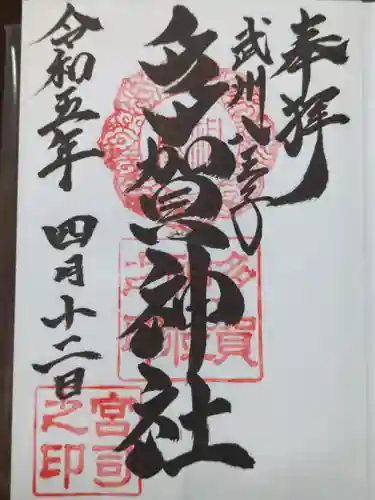 奉拝
武州八王子
多賀神社
令和五年 四月十二日
多賀神社
宮司之印